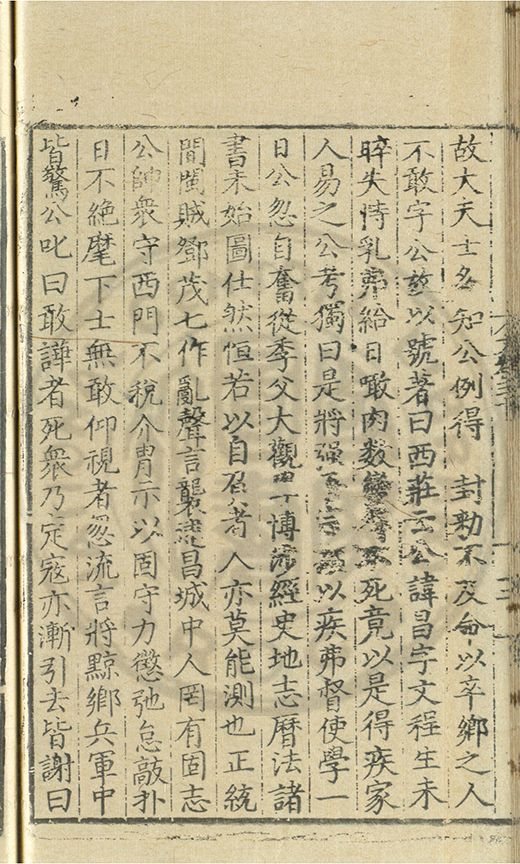 故大夫士多知公例得 封勅不及命以卒鄉之人
不敢字公故以號著曰西莊云公諱昌字文程生未
晬失恃乳弗給日噉肉数臠不死竟以是得疾家
人易之公考獨曰是將强以疾弗督使學一
日公忽自奮從季父大觀博渉經史地志曆法諸
書未始圖仕然恒若以自者人亦莫能測也正統
間閩賊鄧茂七作亂聲言襲建昌城中人罔有固志
公帥衆守西門不稅介冑示以固守力懲弛怠敲扑
日不絶麾下士無敢仰視者忽流言將黥鄉兵軍中
皆驚公叱曰敢譁者死衆乃定寇亦漸引去皆謝曰